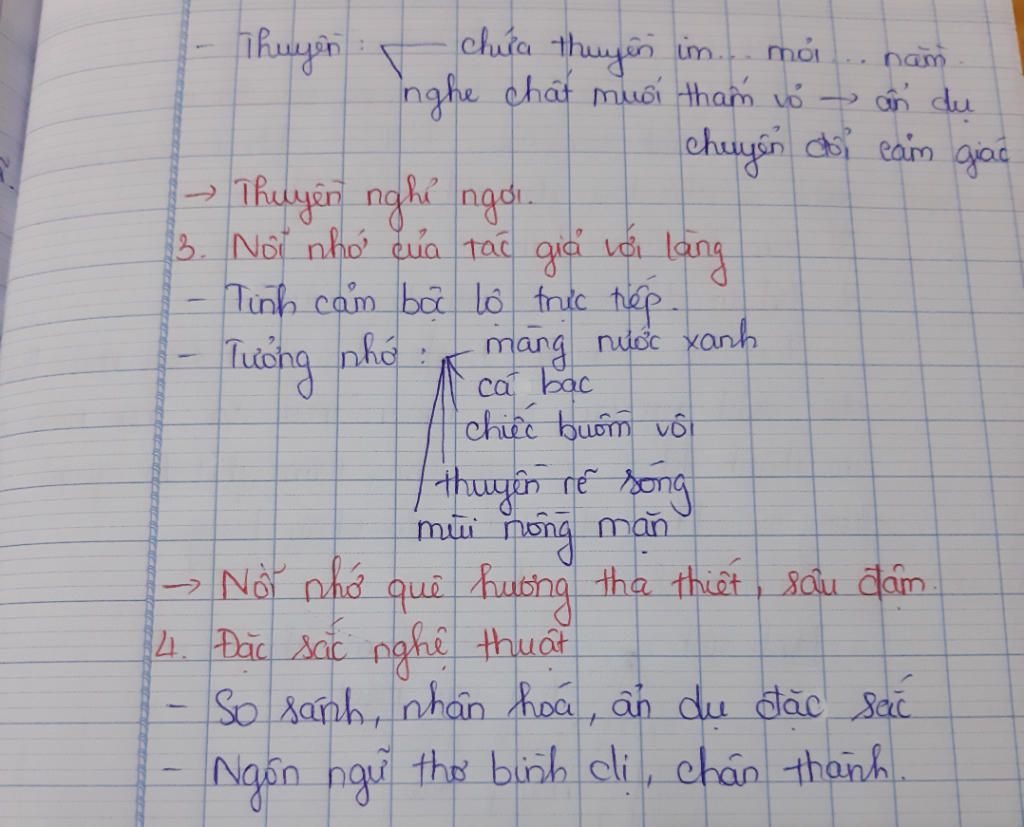 - Thuyền : chứa thuyền im... mỏi .. nằm.
nghe chất muối thấm vỏ → ẩn dụ
chuyển đổi cảm giác
→ Thuyền nghỉ ngơi.
3. Nỗi nhớ của tác giả với làng
- Tình cảm bộc lộ trực tiếp.
- Tưởng nhớ : màng nước xanh
cá bạc
chiếc buồm vôi
thuyền rẽ sóng
mùi nồng mặn
→ Nỗi nhớ quê hương tha thiết, sâu đậm.
4. Đặc sắc nghệ thuật
- So sánh, nhân hoá, ẩn dụ đặc sắc
- Ngôn ngữ thơ bình dị, chân thành.